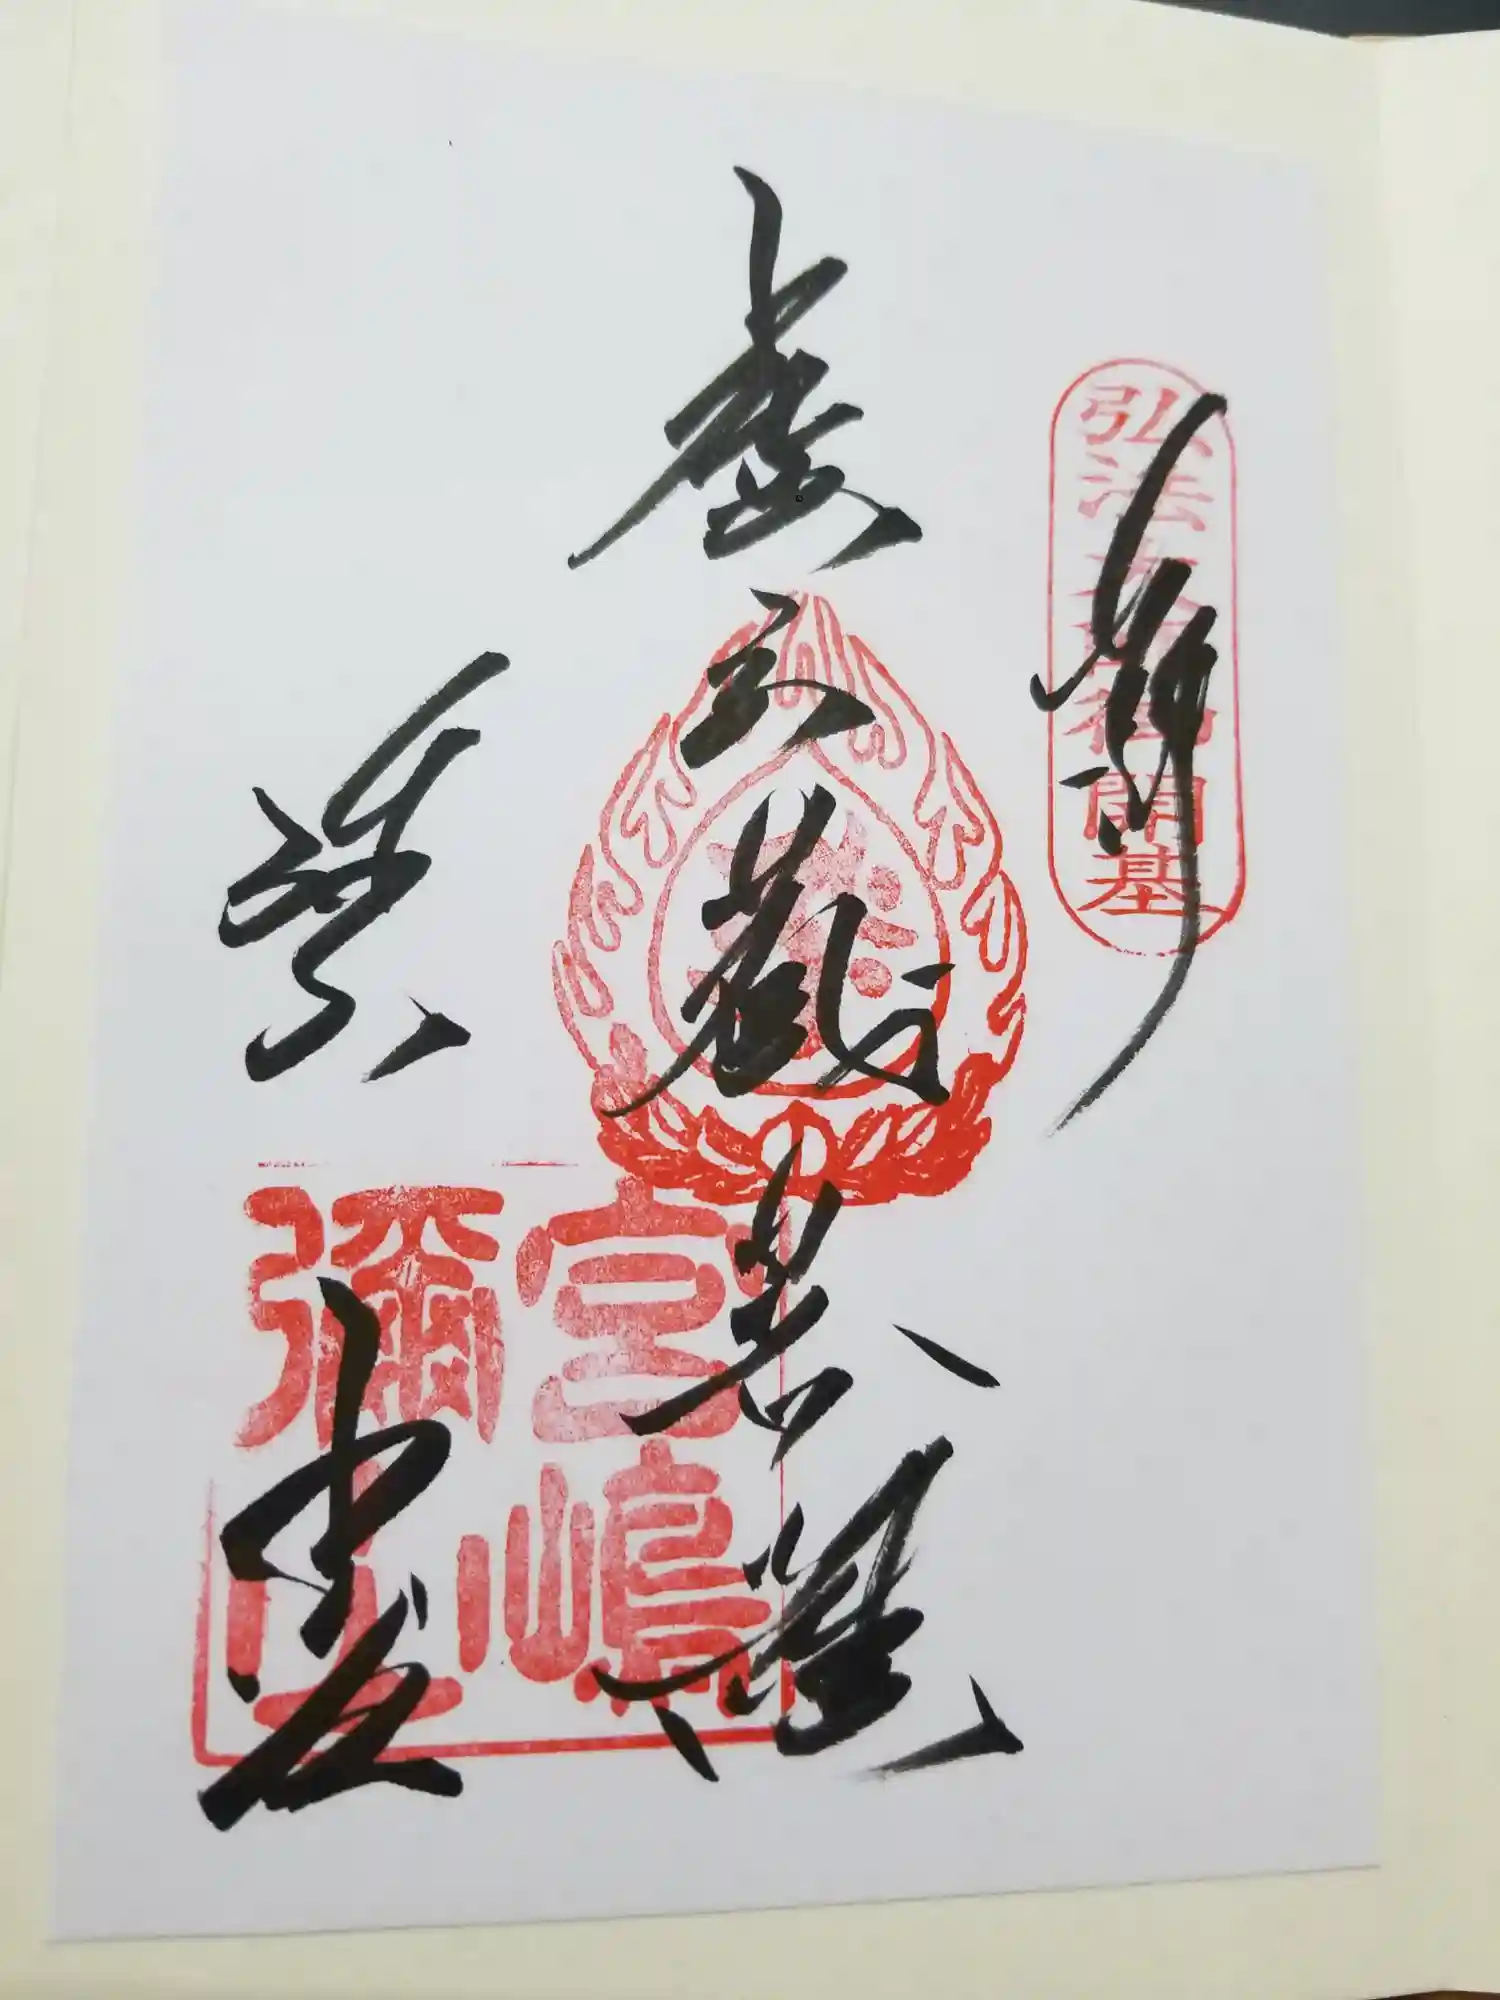 奉拝
弘法大師御開基
虚空蔵菩薩
宮嶋
彌山
本堂